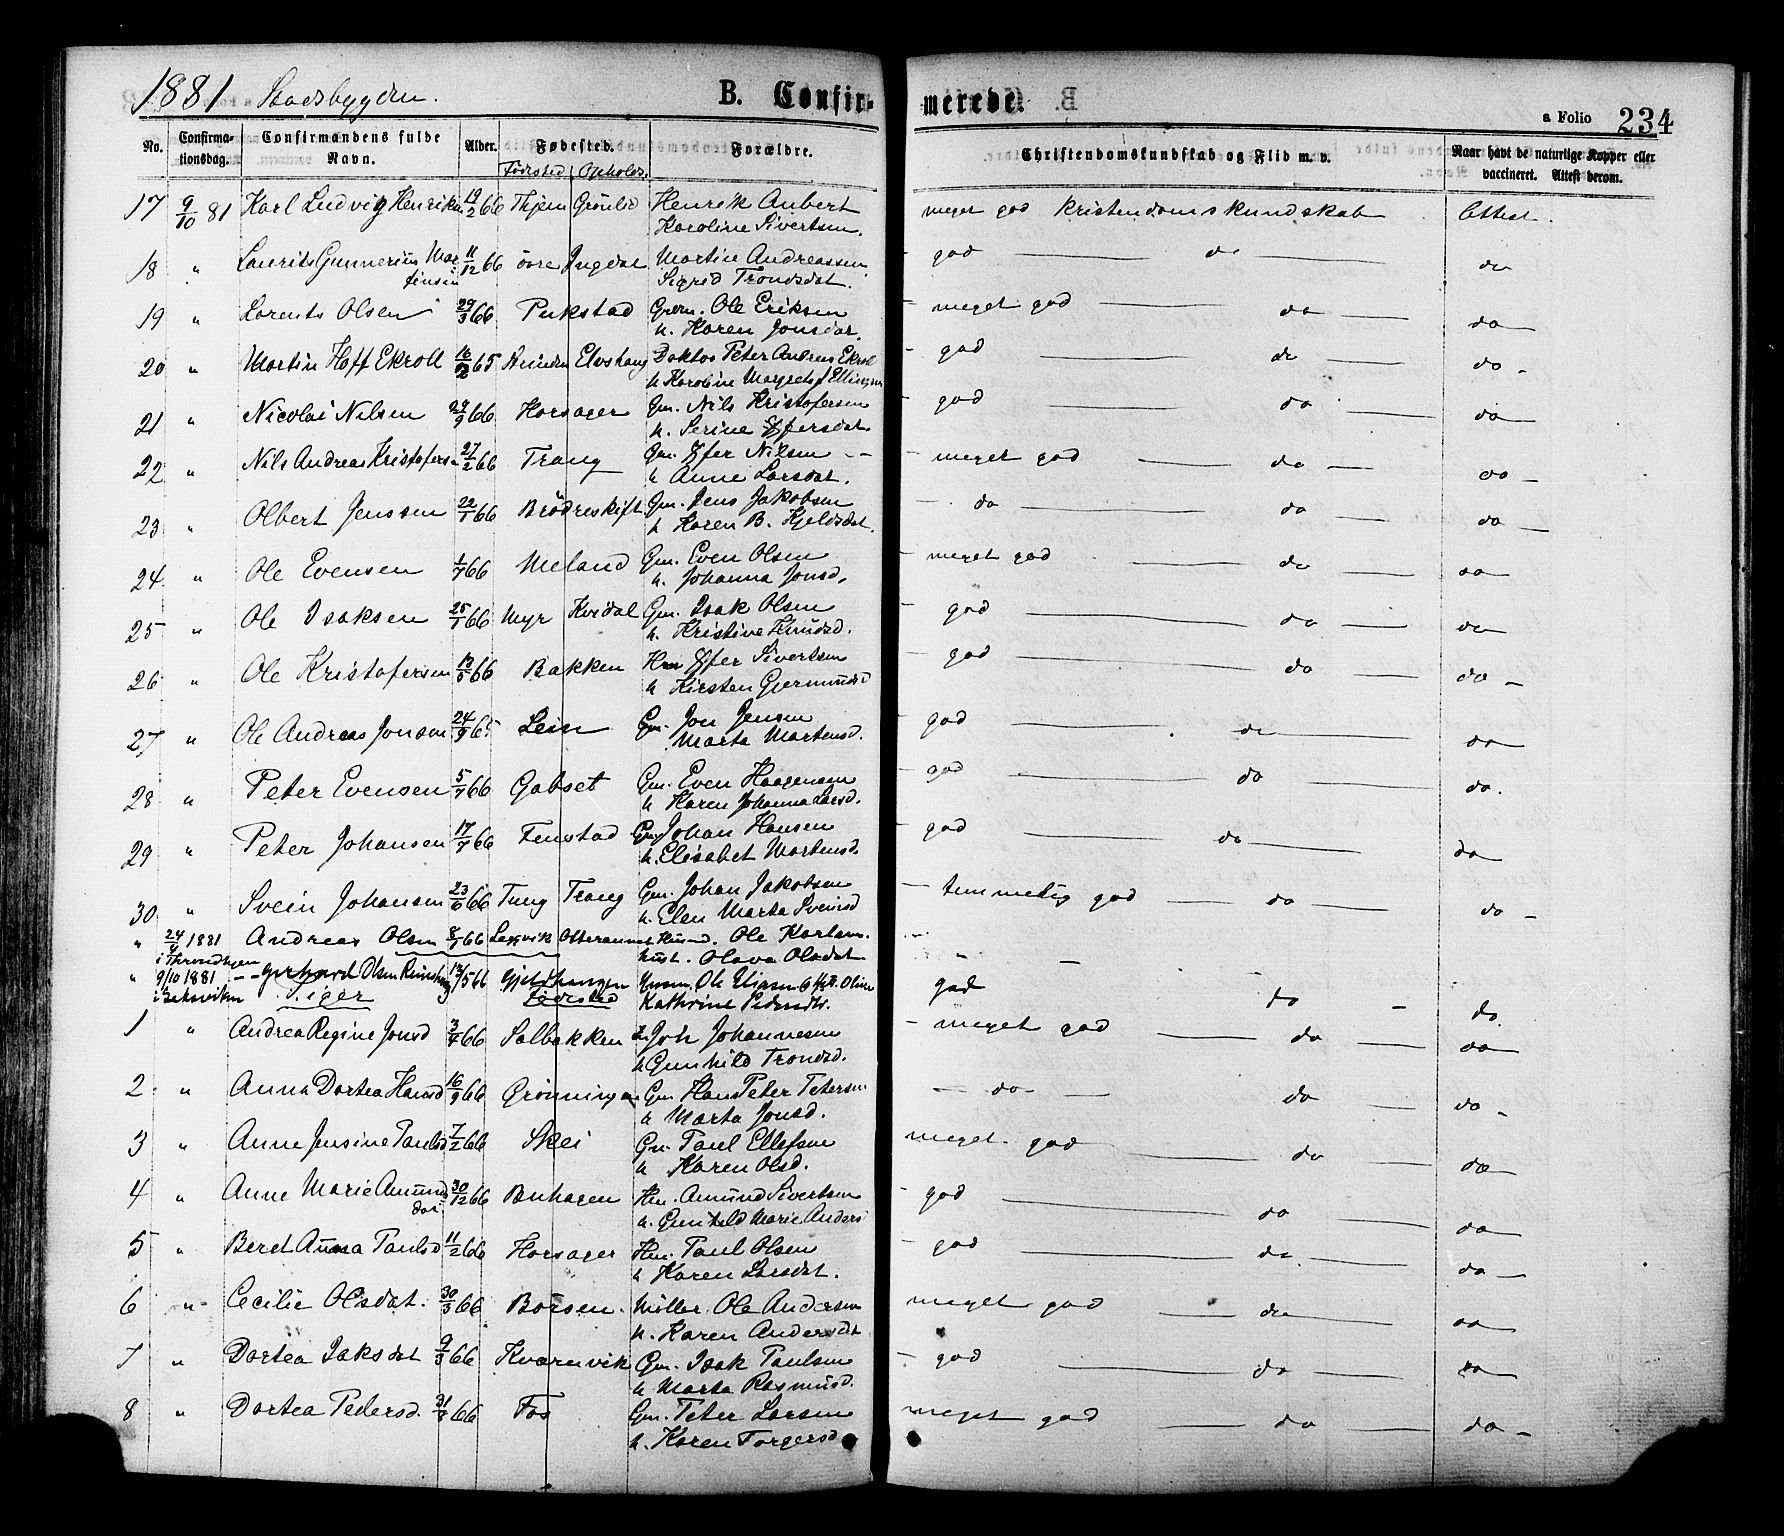 1881 Stadsbygden.
B. Confir-
merede.
a Folio 234
No. Confirma-tionsdag. Confirmandens fulde Navn. Alder. Fødested. Forældre. Christendomskundskab og Flid m. v. Naar havt de naturlige Kopper eller vaccineret. Attest derom.
Födested Ophold.
17 9/10 81 Karl Ludvig Henriksen 19/2 66 Thjem Grönlid Henrik Aubert meget god kristendomskundskab Attest.
Karoline Sivertsen.
18 " Laurits Gunnerius Mar 11/12 66 övre Ingdal Martin Andreassen - god do do
tinsen Sigrid Trondsdat.
19 " Lorents Olsen 29/3 66 Pukstad Grdm. Ole Eriksen - meget god do do
h. Karen Jonsdat.
20 " Martin Hoff Ekroll 16/12 65 Strinden Elvshaug Doktor Peter Andreas Ekroll - god do do -
h Karoline Margrete f Ellingsen
21 " Nicolai Nilsen 29/9 66 Horsager Gm. Nils Kristofersen - god do do
h. Serine Effersdat.
22 " Nils Andreas Kristofersen 27/2 66 Trang Gm. Effer Nilsen - meget god do do -
h Anne Larsdat.
23 " Olbert Jenssen 22/1 66 Brödreskift Gm. Jens Jakobsen - do do do
h Karen B. Kjeldsdat.
24 " Ole Evensen 1/7 66 Meland Gm. Even Olsen - meget god do do
h. Johanna Jonsd.
25 " Ole Isaksen 25/1 66 Myr Kvidal Gm. Isak Olsen - god do do
h. Kristine Knudsd.
26 " Ole Kristofersen 13/5 66 Bakken Hm Effer Sivertsen - god do do -
h Kirsten Gjermundsd
27 " Ole Andreas Jonsen 24/9 65 Lein Gm. Jon Jensen - god do do
Marta Martensd.
28 " Peter Evensen 5/7 66 Gabset Gm. Even Haagensen - god do do.
h Karen Johanna Larsd.
29 " Peter Johansen 17/7 66 Fenstad Gm Johan Hansen - god do do
h. Elisabet Martensd.
30 " Svein Johansen 23/6 66 Tung Trang Gm. Johan Jakobsen - temmelig god do do -
h. Elen Marta Sveinsd
" 24/4 1881 Andreas Olsen 8/1 66 Lexvik Otteraunet Husmd. Ole Karlsen
i Throndhjem hust. Olava Olsdat
" 9/10 1881 Gerhard Olsen 13/5 66 god do - do.
i Beknviken Födested Kathrine Pedersdtr.
1 " Andrea Regine Jonsd 3/4 66 Solbakken Joh Johannesen - meget god do do
h Gunhild Trondsd.
2 " Anna Dortea Hansd 16/9 66 Grönningen Gm Hans Peter Petersen - do - do do -
h Marta Jonsd.
3 " Anne Jensine Paulsd 7/2 66 Skei Gm. Paul Ellefsen meget god do do
h Karen Olsd.
4 " Anne Marie Amunds 30/12 66 Buhagen Hm. Amund Sivertsen - god do do
dat h. Gunhild Marie Anders
5 " Beret Anna Paulsd 11/2 66 Horsager Hm. Paul Olsen - god do do
h Karen Larsdat.
6 " Cecilie Olsdat. 30/3 66 Börsen. Möller Ole Andersen meget god do do
h. Karen Andersdt
7 " Dortea Isaksdat 9/3 66 Kvarnvik Gm. Isak Paulsen - god do do
h Marta Rasmusd.
8 " Dortea Pedersd. 66 Fos Gm. Peter Larsen meget god do do -
h. Karen Torgersd